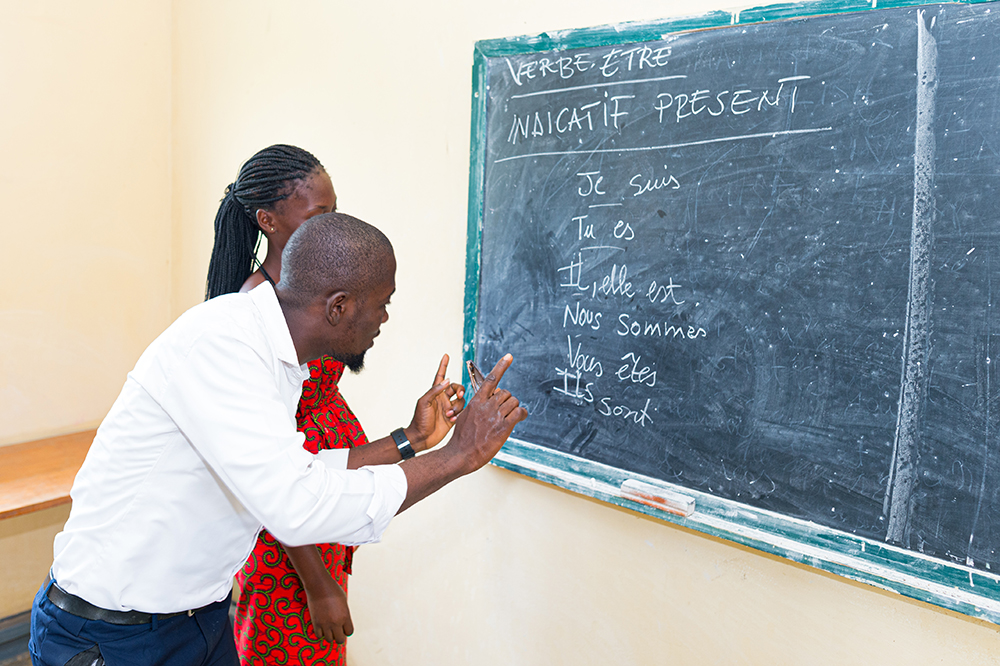 VERBE. ETRE
INDICATIF PRESENT
Je suis
Tu es
Il, elle est
Nous Sommes
Vous êtes
Ils sont